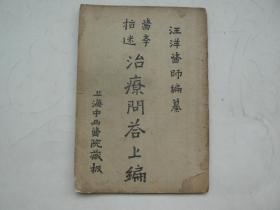 汪洋醫師編纂
醫學指迷
治療問荅上編
上海中西醫院藏板